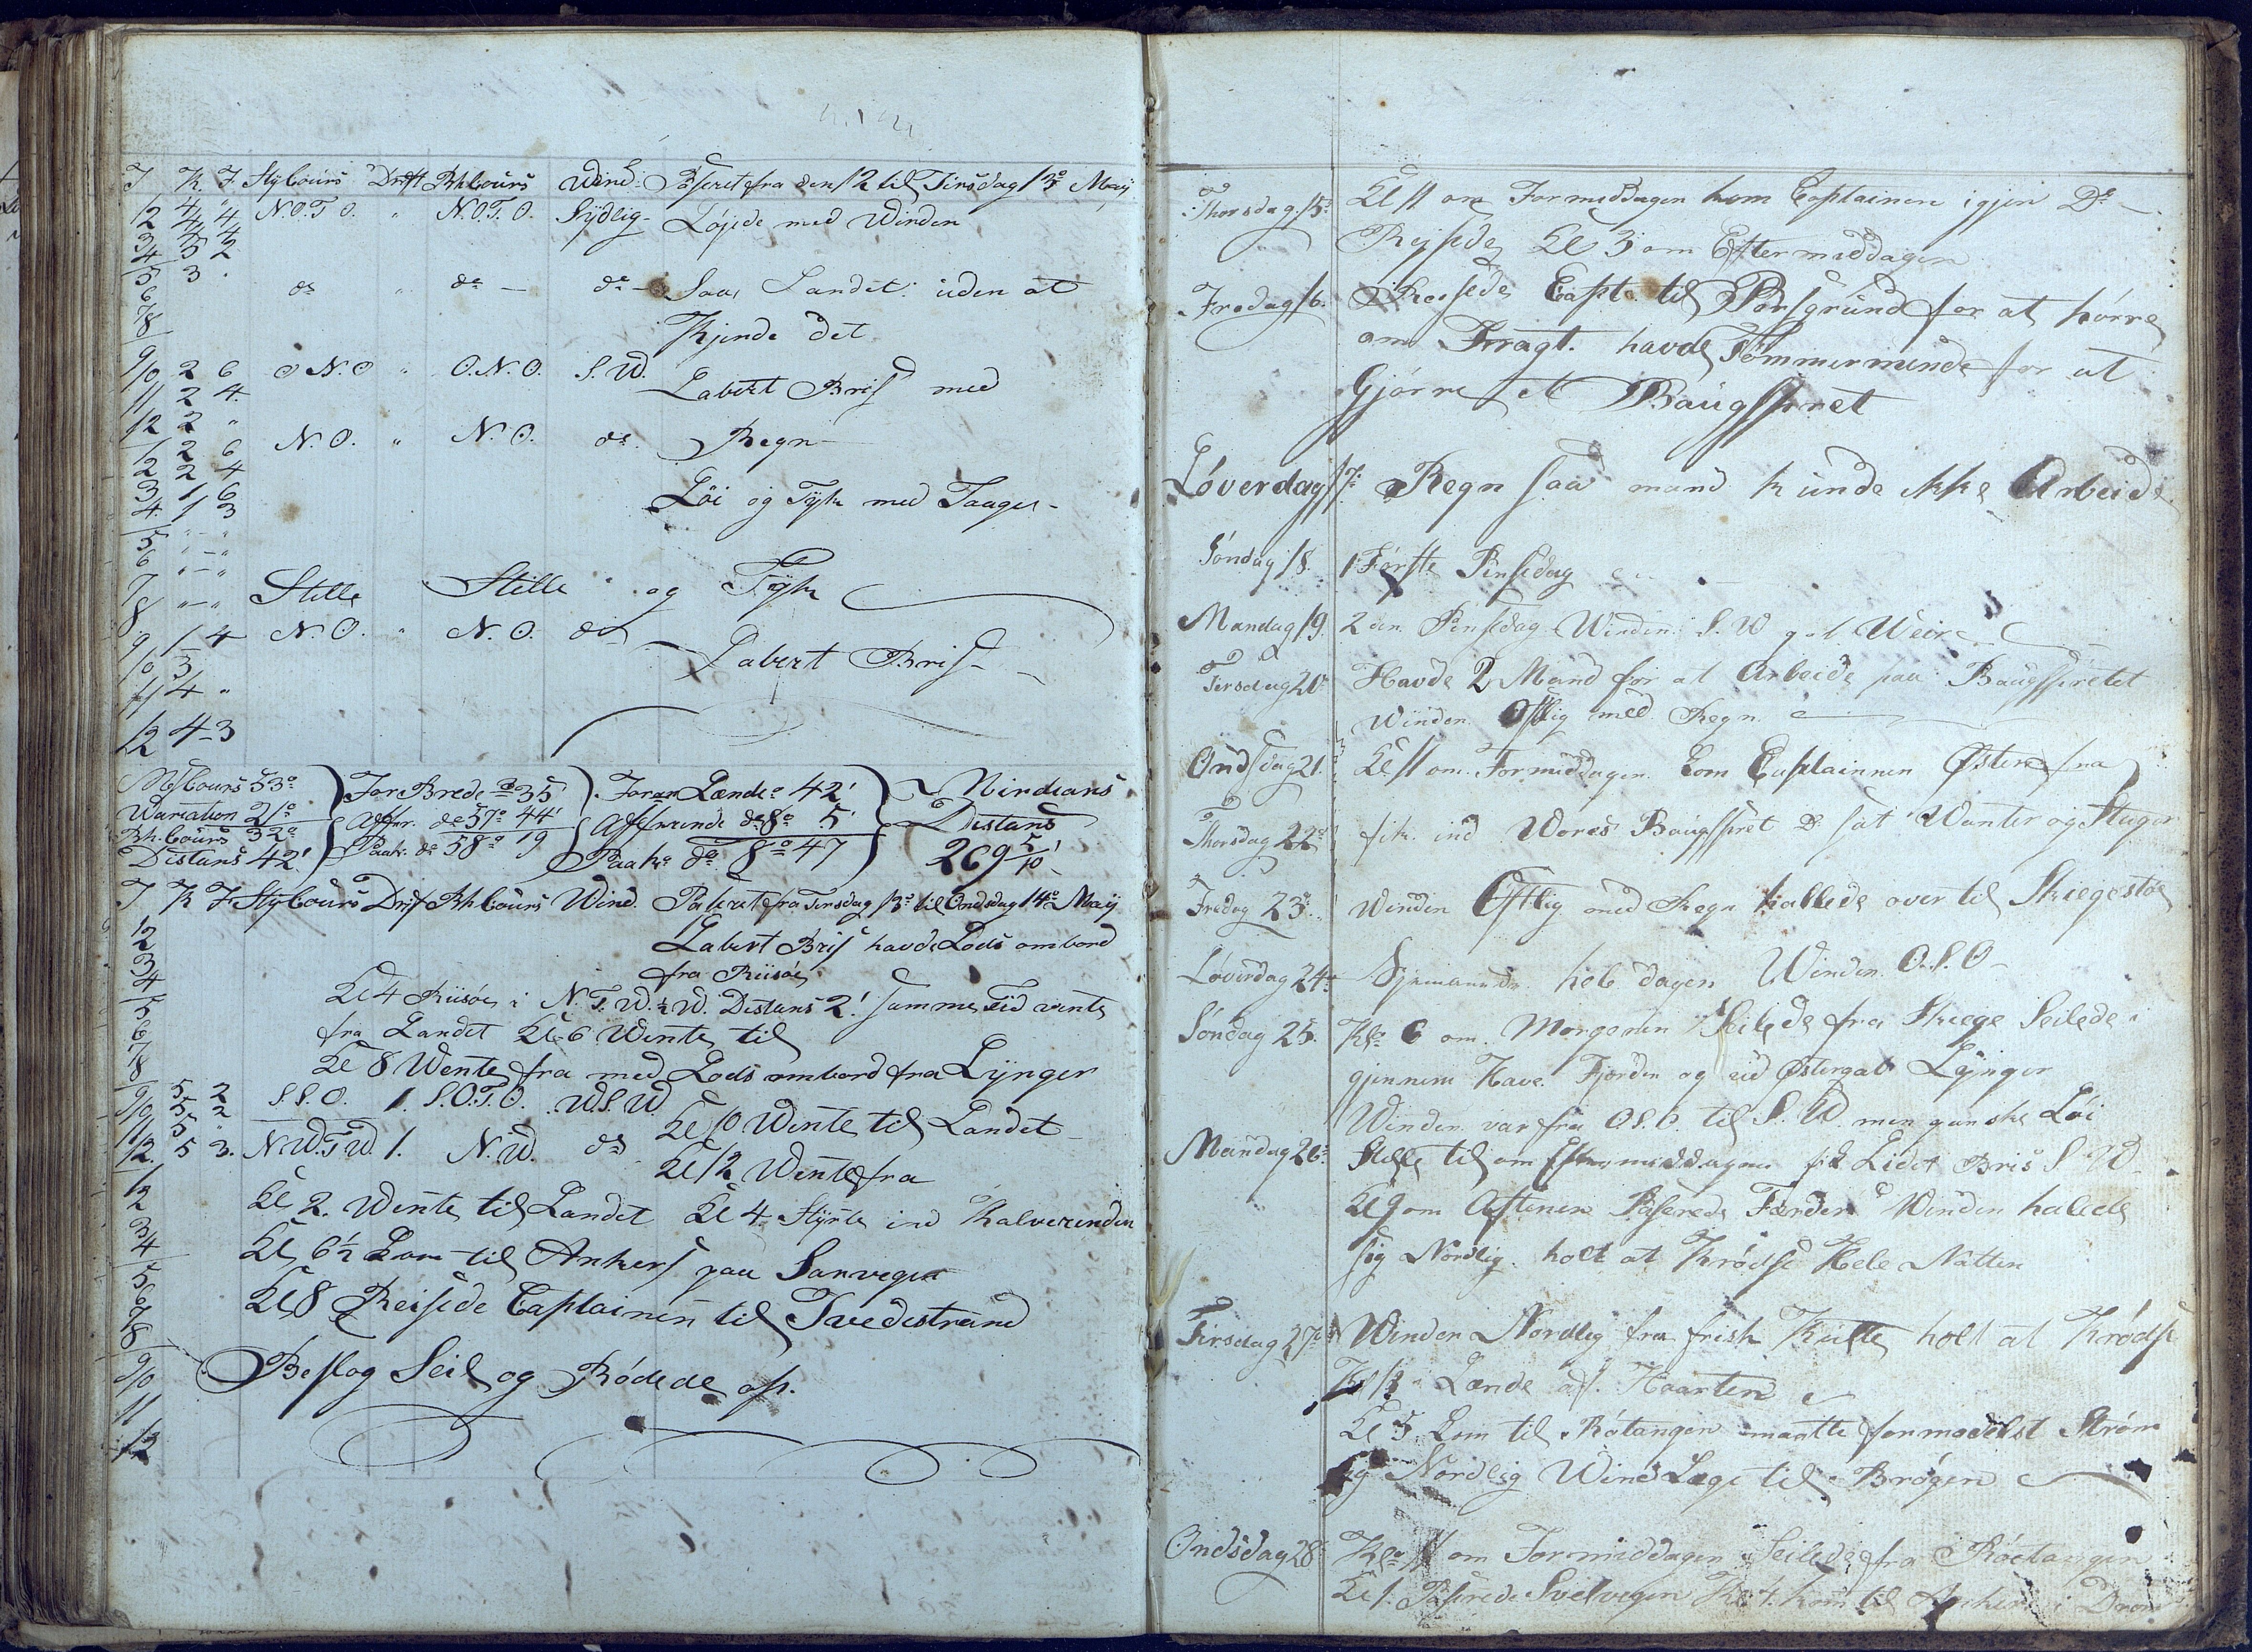 T K. F. Stÿ Cours Drift Bh Cours Wind. Passeret fra den 12 til Tirsdag 13de Maÿ
1 4 "
2 4 4 N.O.T.O. " N.O.T.O. Sÿdlig - Løjede med Winden
3 4 4
4 5 2
5 3 . do " do - do - Saae Landet uden at
6
7 Kjende det
8
9
10 2 6 O.N.O " O.N.O. S.W. Labert Bris med
11 2 4.
12 2 "
1 2 6 N.O. " N.O. do. Regn
2 2 4
3 1 6 Løi og Tÿk med Taager -
4 1 3
5 " - "
6 " - "
7 " - " Stille Stille og Tÿk
8
9 1 4 N.O. " N.O. do - Labert Bris -
10 3
11 4 "
12 4 - 3
Mss Cours 53° For Brede 35 Foran Lænde 42' Nirdeans
Wariation 21° Affr. do 57° 44' Affarende do 8° 5' Distans
Bh. Cours 32° Paak. do 58° 19 Paak. do 8° 47 269 5/10'
Distans 42'
T K F Stÿ Cours Drift Bh Cours Wind. Passeret fra Tirsdag 13de til Ondsdag 14de Maÿ
1
2 Labert Bris havde Lods ombord
3 fra Riisøe
4 Kl 4 Riisøe i N.T.W. ½ W. Distans 2'. samme Tid vente
5 fra Landet Kl 6 Wente til
6
7 Kl 8 Wente fra med Lods ombord fra Lÿnger
8
9 5 2 S.S.O. 1. S.O.T.O. W.S.W.
10 5 2 Kl 10 Wente til Landet
11 5 "
12. 5 3. N.W.T.W. 1. N.W. do Kl 12 Wente fra
1
2 Kl 2. Wente til Landet Kl 4. Stÿrte ind Kalverenden
3
4 Kl 6½ Kom til Ankers paa Sanvegen
5
6 Kl 8 Reisede Captainen til Tvedestrand
7
8
9 Beslog Seil og Rødede op.
10
11
12
Thorsdag 15. Kl 11 om Formiddagen kom Captainen igjen Do -
Rejsede Kl 3 om Eftermiddagen
Fredag 16. Reisede Capte. til Porsgrund for at hørre
om Fragt. havde Tømmermende for at
Gjørre et Baugspret
Løverdag 17. Regn saa mand kunde ikke Arbeide
Søndag 18. 1 Første Pinsedag
Mandag 19. 2 den Pinsedag Winden S.W got Weir
Tirsdag 20. Havde 2 Mand for at Arbeide paa Baugspretet
Winden Østlig med Regn.
Ondsdag 21. Kl 11 om Formiddagen Kom Captainnen Østenfra
Thorsdag 22de fik ind Wores Baugspret & sat Wanter og Stager
Fredag 23de Winden Østlig med Regn hallede over til Skiegestøe
Løverdag 24de hele dagen Winden O.S.O
Søndag 25. Kl. 6 om Morgenen Seilede fra Skiege Seilede i
gjennem Have Fjorden og ud Østergab Lÿngør
Winden var fra O.S.O. til S.W. men ganske Løi
Mandag 26. Stille til om Eftermiddagen fik Lidet Bris S W -
Kl 9 om Aftenen Passerede Færder Winden halede
sig Nordlig holt at Krødse Hele Natten
Tirsdag 27de Winden Nordlig fra frisk Kulte holt at Krødse
Lænde af Haarten
Kl 5. Kom til Røtangen maatte formedelst Strøm
og Nordlig Wind Lege til Brøgen
Ondsdag 28. Kl. 11 om Formiddagen Seilede fra Røetangen
Kl 1. Passerede Svelvegen Kl 4. kom til Anker i Dram